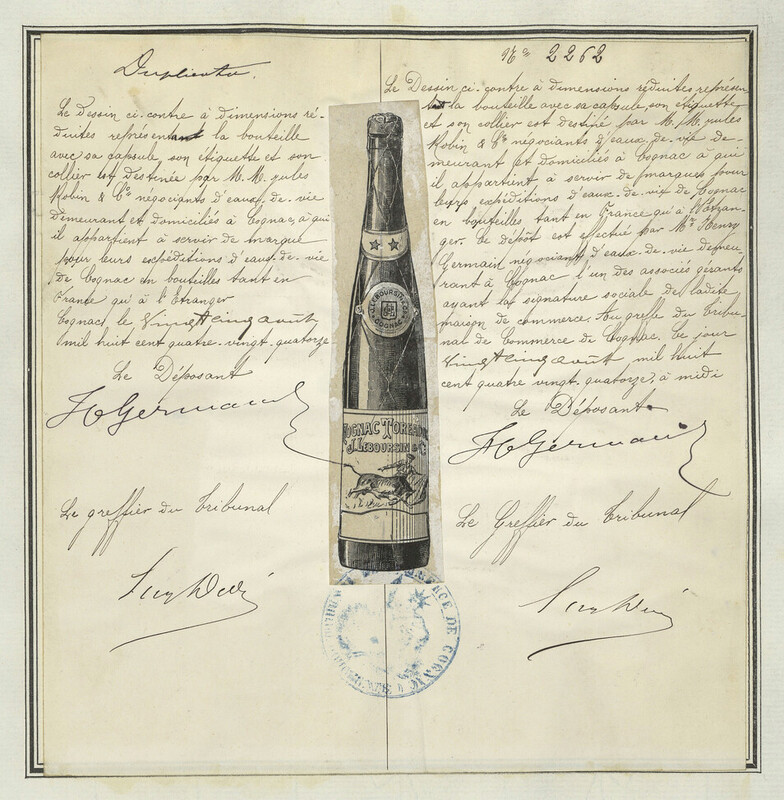 Duplicata.
Le dessin ci-contre à dimensions ré-
duites représentant la bouteille
avec sa capsule, son étiquette et son
collier est destinée par M.M. Jules
Robin & Cie négociants d'eaux-de-vie
demeurant et domiciliés à Cognac, à qui
il appartient à servir de marque
pour leurs expéditions d'eaux-de-vie
de Cognac en bouteilles tant en
France qu'à l'Etranger
Cognac, le Vingt cinq août
mil huit cent quatre-vingt-quatorze
Le Déposant
H Germain
Le greffier du Tribunal
No 2262
Le Dessin ci-contre à dimensions réduites représen-
tant la bouteille avec sa capsule, son étiquette
et son collier est destiné par M.M. Jules
Robin & Cie négociants d'eaux-de-vie de-
meurant et domiciliés à Cognac à qui
il appartient à servir de marques pour
leurs expéditions d'eaux-de-vie de Cognac
en bouteilles tant en France qu'à l'Etran-
ger. Le dépôt est effectué par Mr Henry
Germain négociant d'eaux-de-vie demeu-
rant à Cognac l'un des associés gérants
ayant la signature sociale de ladite
maison de commerce. Au greffe du Tribu-
nal de Commerce de Cognac. Ce jour
Vingt cinq août mil huit
cent quatre vingt-quatorze, à midi
Le Déposant
H Germain
Le Greffier du Tribunal
J. LEBOURSIN & Cie
COGNAC
COGNAC TOREADOR
J. LEBOURSIN & Cie
DE COGNAC